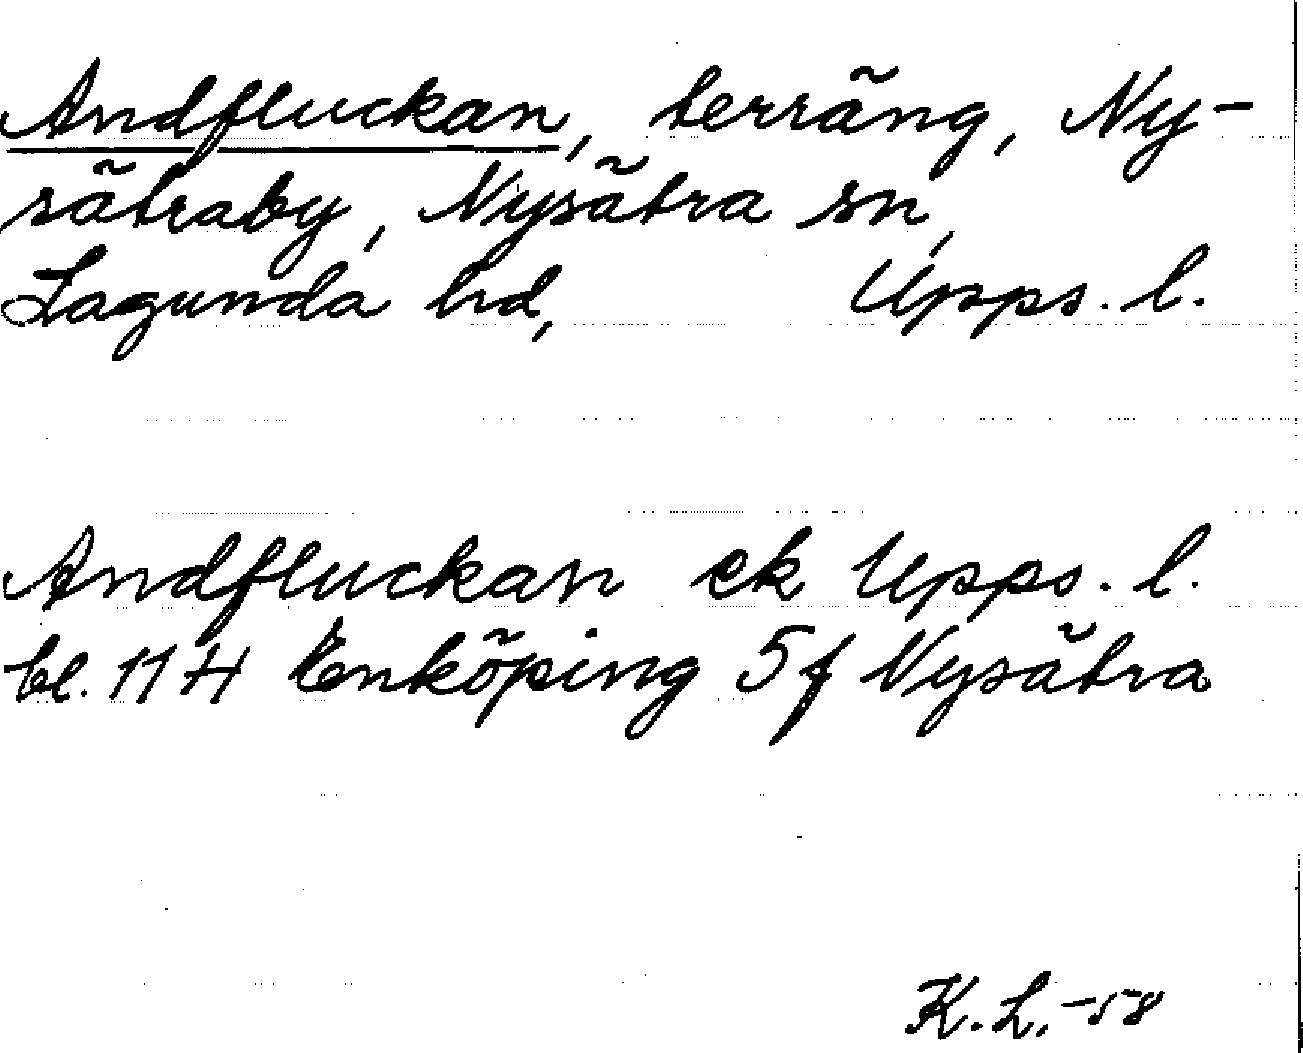 Andfluckan, terräng, Ny-
sätraby, Nysätra sn,
Lagunda hd, Upps. l.
Andfluckan ek Upps. l.
bl. 11 H Enköping 5 f Nysätra
K. L. -58